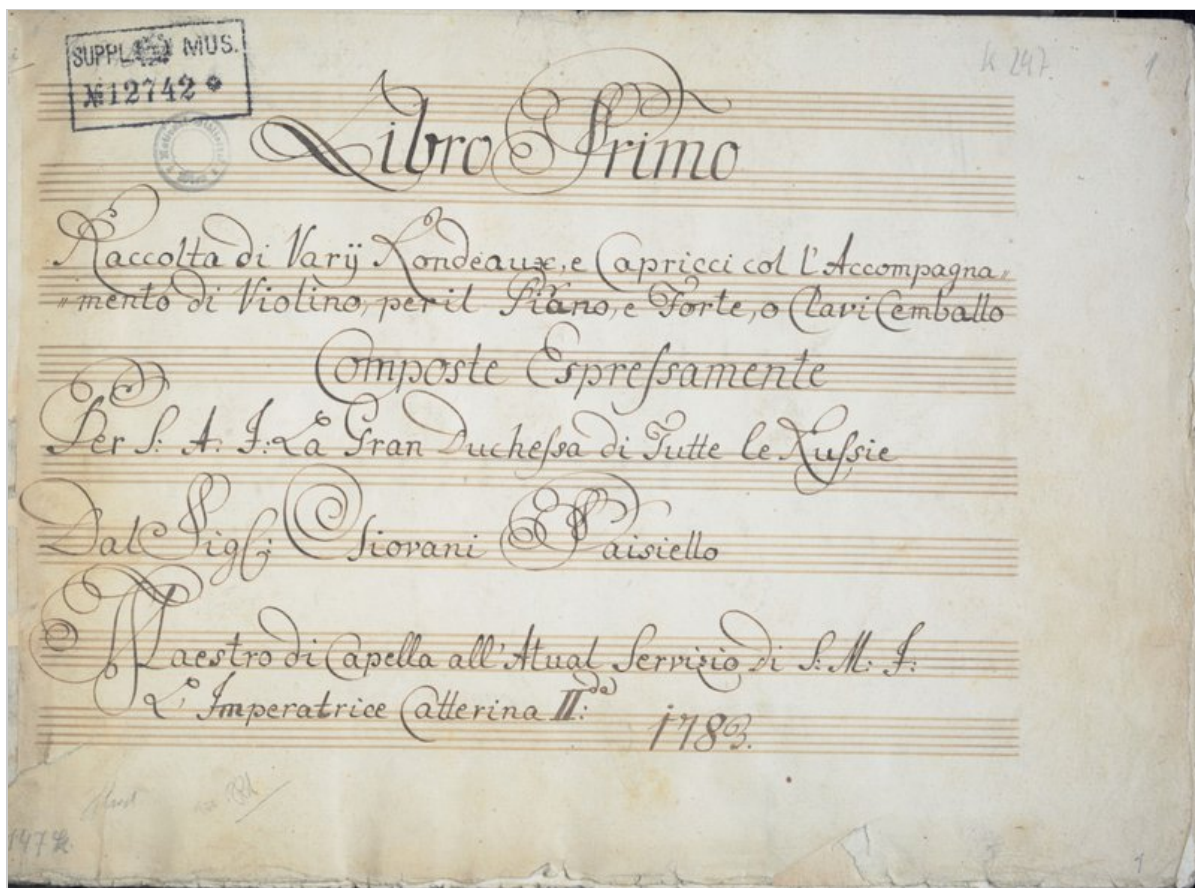 SUPPL. MUS.
№ 12742 *
K 247.
1
Libro Primo
Raccolta di Varÿ Rondeaux, e Capricci col l'Accompagna„
„mento di Violino, per il Piano, e Forte, o Clavi Cemballo
Composte Espreſsamente
Per S: A: I: La Gran Ducheſsa di Tutte le Ruſsie
Dal Sig: Giovani Paisiello
Maestro di Capella all'Atual Servizio di S: M: I:
L'Imperatrice Catterina II:da
1783.
1